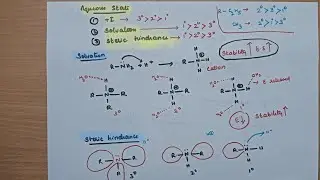 Aqueous State
① +I → 3°>2°>1°
② Solvation → 1°>2°>3°
③ Steric hindrance → 1°>2°>3°
R - C₂H₅ → 2°>3°>1°
CH₃ → 2°>1°>3°
Stability ↑ B.S ↑
Solvation
R - NH₂ + H⁺ → R - N - H
H
H
Cation
Stability ↑
R - N - H
R - N - R
R - N - R
1°
2°
3°
Steric hindrance
R N R
R N R
R N H
3°
2°
1°